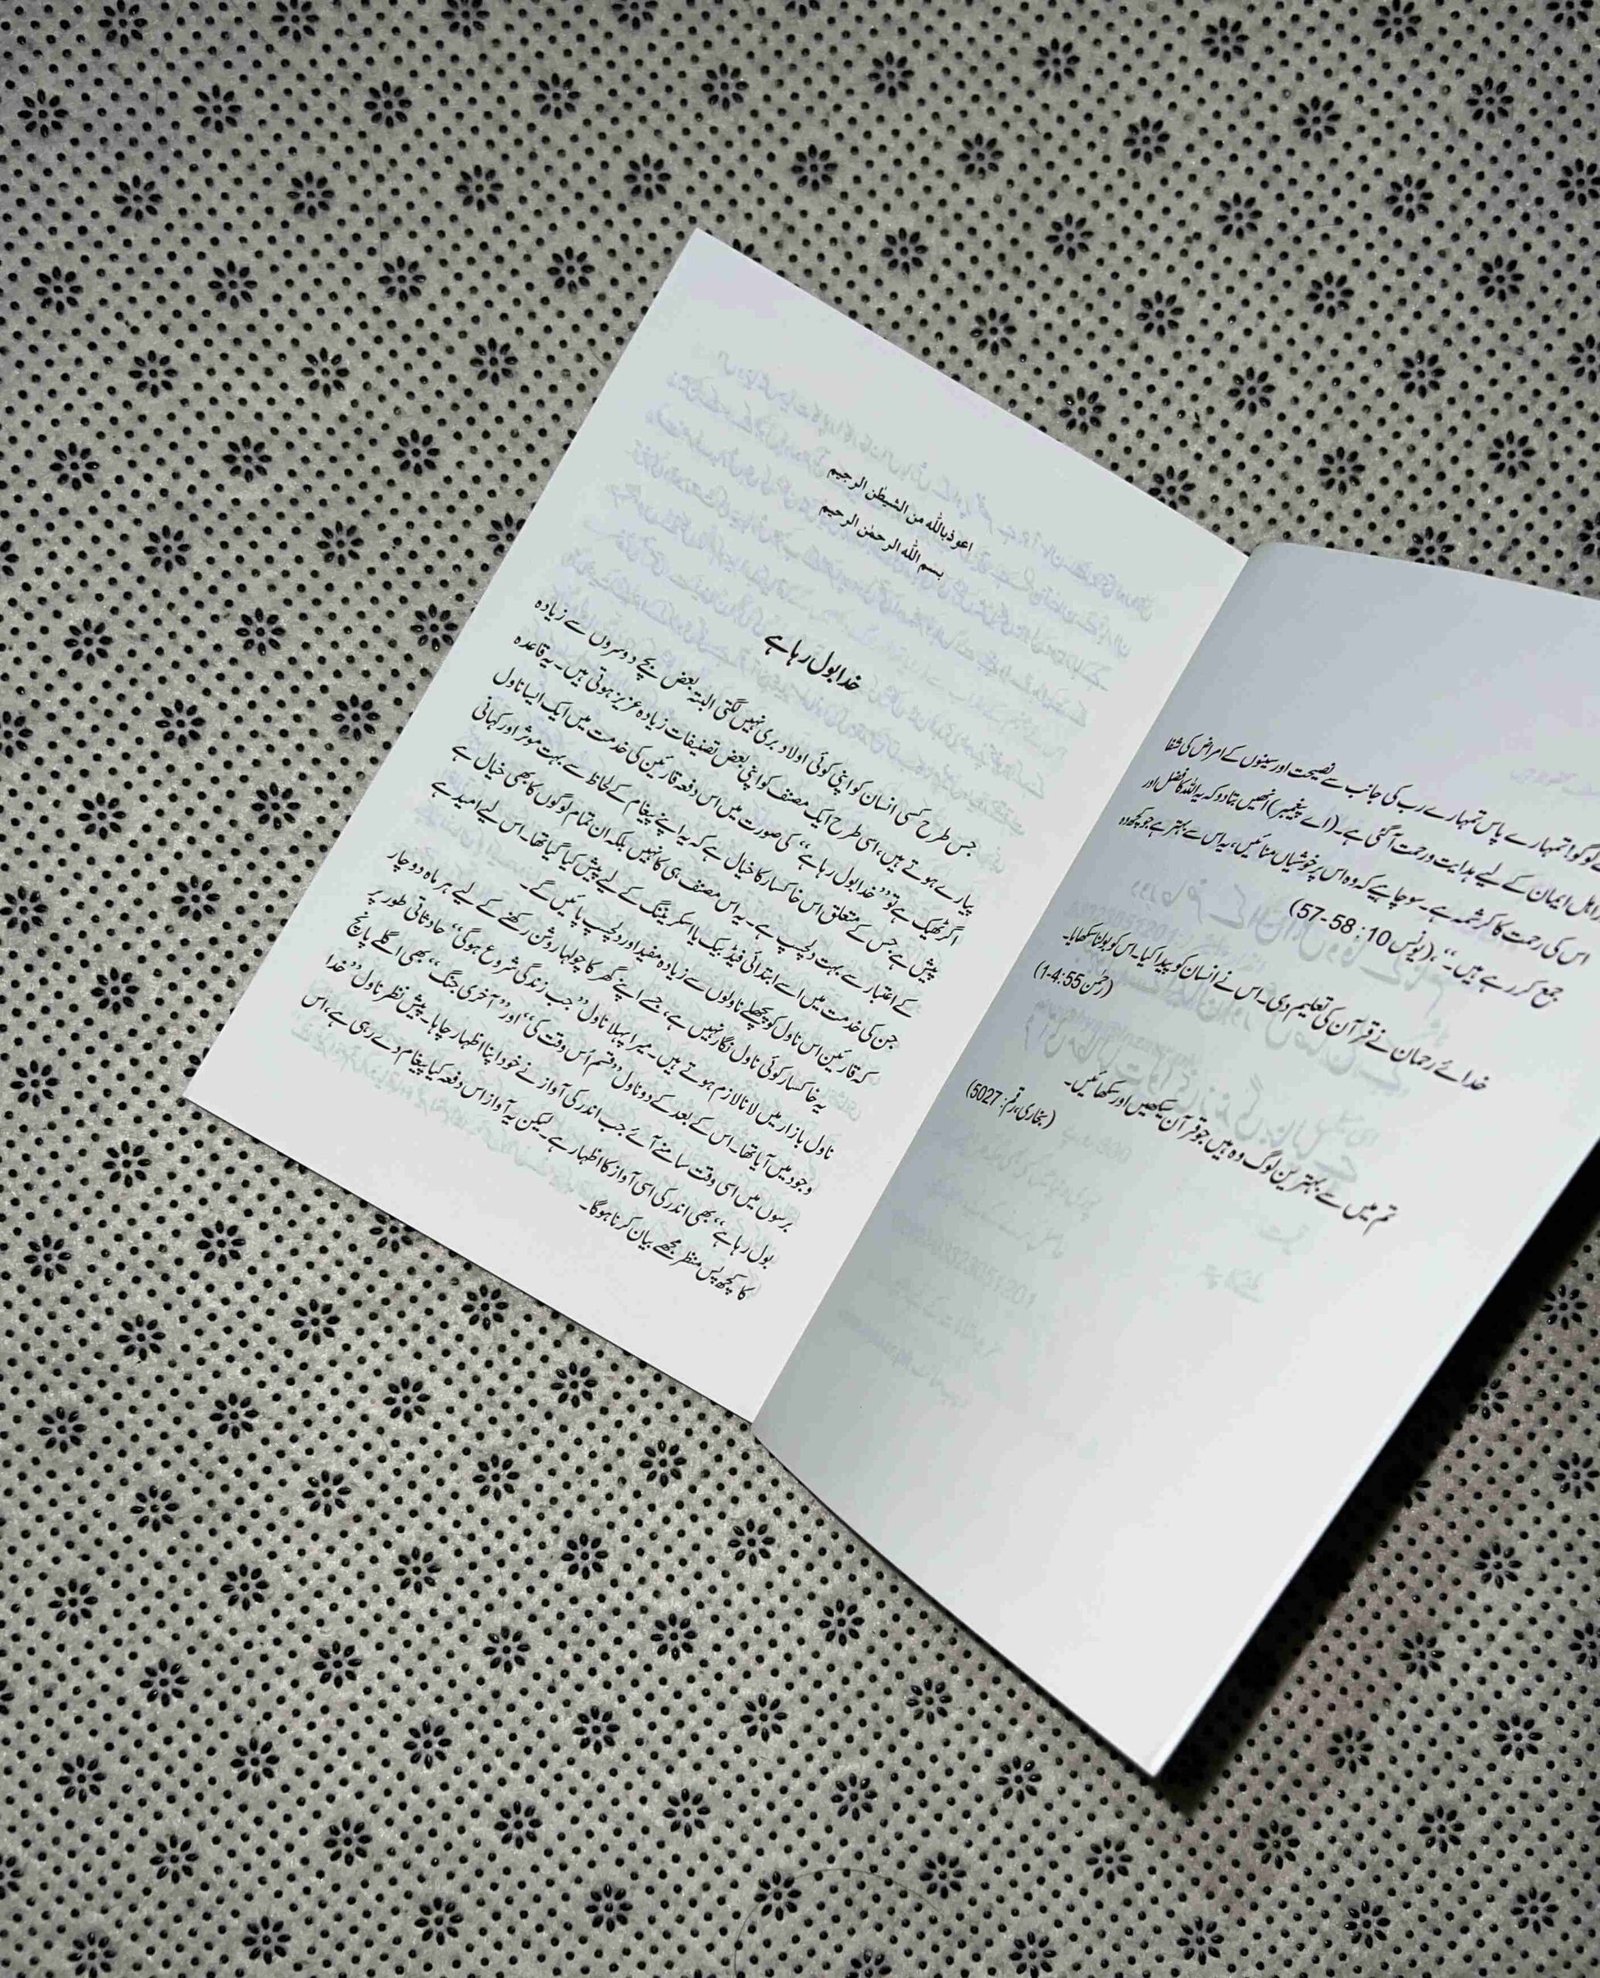 لوگو! تمہارے پاس تمہارے رب کی جانب سے نصیحت اور سینوں کے امراض کی شفا
اور اہل ایمان کے لیے ہدایت و رحمت آ گئی ہے۔ (اے پیغمبر) انھیں بتا دو کہ یہ اللہ کا فضل اور
اس کی رحمت کا کرشمہ ہے۔ سو چاہیے کہ وہ اس پر خوشیاں منائیں، یہ اس سے بہتر ہے جو کچھ وہ
جمع کر رہے ہیں۔‘‘، (یونس 10: 58-57)
خدائے رحمان نے قرآن کی تعلیم دی۔ اس نے انسان کو پیدا کیا۔ اس کو بولنا سکھایا۔
(رحمٰن 55:4-1)
تم میں سے بہترین لوگ وہ ہیں جو قرآن سیکھیں اور سکھائیں۔
(بخاری، رقم: 5027)
اعوذ باللہ من الشیطٰن الرجیم
بسم اللہ الرحمٰن الرحیم
خدا بول رہا ہے
جس طرح کسی انسان کو اپنی کوئی اولاد بری نہیں لگتی البتہ بعض بچے دوسروں سے زیادہ
پیارے ہوتے ہیں، اسی طرح ایک مصنف کو اپنی بعض تصنیفات زیادہ عزیز ہوتی ہیں۔ یہ قاعدہ
اگر ٹھیک ہے تو ’’خدا بول رہا ہے‘‘ کی صورت میں اس دفعہ قارئین کی خدمت میں ایک ایسا ناول
پیش ہے جس کے متعلق اس خاکسار کا خیال ہے کہ یہ اپنے پیغام کے لحاظ سے بہت موثر اور کہانی
کے اعتبار سے بہت دلچسپ ہے۔ یہ اس مصنف ہی کا نہیں بلکہ ان تمام لوگوں کا بھی خیال ہے
جن کی خدمت میں اسے ابتدائی فیڈ بیک یا اسکریننگ کے لیے پیش کیا گیا تھا۔ اس لیے امید ہے
کہ قارئین اس ناول کو پچھلے ناولوں سے زیادہ مفید اور دلچسپ پائیں گے۔
یہ خاکسار کوئی ناول نگار نہیں ہے، جسے اپنے گھر کا چولہا روشن رکھنے کے لیے ہر ماہ دو چار
ناول بازار میں لانا لازم ہوتے ہیں۔ میرا پہلا ناول ’’جب زندگی شروع ہوگی‘‘ حادثاتی طور پر
وجود میں آیا تھا۔ اس کے بعد کے دو ناول ’’قسم اُس وقت کی‘‘ اور ’’آخری جنگ‘‘ بھی اگلے پانچ
برسوں میں اسی وقت سامنے آئے جب اندر کی آواز نے خود اپنا اظہار چاہا۔ پیش نظر ناول ’’خدا
بول رہا ہے‘‘ بھی اندر کی اسی آواز کا اظہار ہے۔ لیکن یہ آواز اس دفعہ کیا پیغام دے رہی ہے، اس
کا کچھ پس منظر مجھے بیان کرنا ہوگا۔